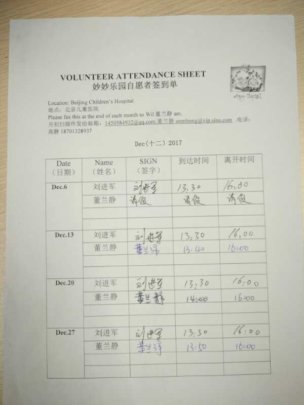 VOLUNTEER ATTENDANCE SHEET
妙妙乐园自愿者签到单
Location: Beijing Children's Hospital
地点：北京儿童医院
Please fax this at the end of each month to Wil 董兰静 am
月初扫描件发给邮箱： 董兰静 电话：
Dec(十二) 2017
Date Name SIGN 到达时间 离开时间
(日期) (姓名) (签字)
Dec.6 刘进军 刘进军 13.30 16.00
董兰静 请假 请假 请假
Dec.13 刘进军 刘进军 13.30 16.00
董兰静 董兰静 13:40 16:00
Dec.20 刘进军 刘进军 13.30 16.00
董兰静 董兰静 14:00 16:00
Dec.27 刘进军 刘进军 13.30 16.00
董兰静 董兰静 13:50 16:00